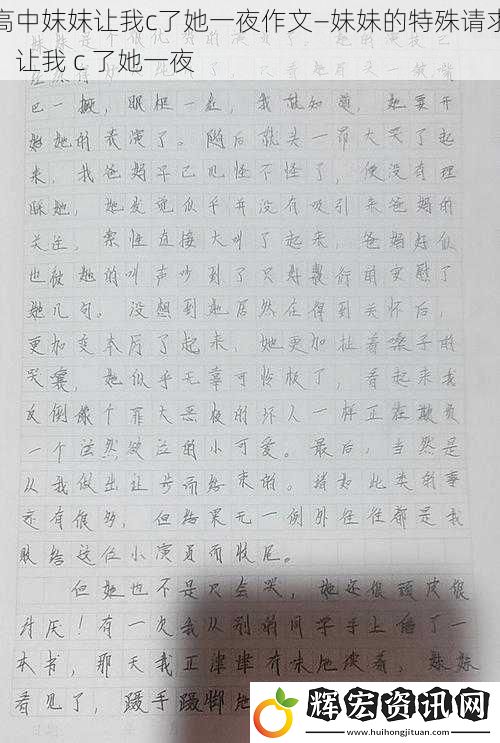 高中妹妹让我c了她一夜作文–妹妹的特殊请求
让我 c 了她一夜
巴一撅，眼眶一红，我就知道，她要开
始她的表演了。随后就是一节大哭了起
来，我爸妈早已见怪不怪了，便没有理
睬她，她发觉似乎并没有吸引来爸妈的
关注，索性直接大叫了起来，爸妈好似
也被她的叫声吵到了只好敷衍的安慰了
她几句。没想到她居然在得到关怀后，
更加变本厉了起来，她更加扯着嗓子的
哭嚷，她似乎无辜可怜极了，看起来我
反倒像个罪大恶极的坏人一样正在欺负
一个泫然欲泣的小可爱。最后，当然是
从我做出让步而结束的。诸如此类的事
还有很多，但结果无一例外往往都是我
服给这位小演员而收尾。
但她也不是只会哭，她还很顽皮很
讨厌！有一次我从别的同学手上借了一
本书，那天我正津津有味地读着，妹妹
看见了，蹑手蹑脚地
辉宏资讯网
www.huihongjituan.com